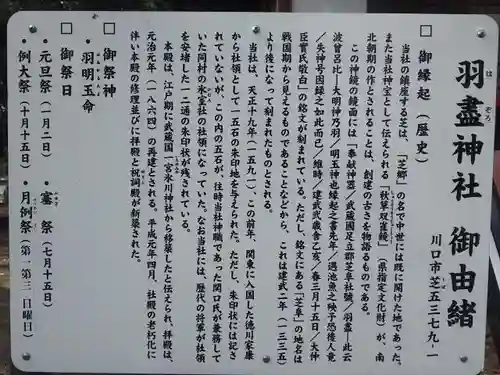 羽盡神社 御由緒
はぞろ
川口市芝五三七九-一
しば
□ 御縁起(歴史)
当社の鎮座する芝は、「芝郷」の名で中世には既に開けた地であった。
また当社神宝として伝えられる「秋草双雀鏡」(県指定文化財)が、南
北朝期の作とされることは、創建の古さを物語るものである。
この神鏡の鏡面には「奉献神器/武蔵国足立郡芝阜社號/羽盡ー此云
波曽呂比ー大明神乃羽/明玉神也縁起之書先年/遇池魚之殃予恐後人竟
/失神号因録之如此而已/維時/建武貳歳舎乙亥/春三月十五日/大仲
臣實氏敬白」の銘文が刻まれている。ただし、銘文にある「芝阜」の地名は
戦国期から見えるものであることなどから、これは建武二年(一三三五)
より後になって刻まれたものとされる。
当社は、天正十九年(一五九一)、この前年、関東に入国した徳川家康
から社領として一五石の朱印地を与えられた。ただし、朱印状には記さ
れていないが、この内の五石が、往時当社神職であった関口氏が兼務して
いた同村の氷室社の社領になっていた。なお当社には、歴代の将軍が社領
を安堵した一二通の朱印状が残されている。
本殿は、江戸期に武蔵国一宮氷川神社から移築したと伝えられ、拝殿は、
元治元年(一八六四)の再建とされる。平成元年四月、社殿の老朽化に
伴い本殿の修理並びに拝殿と祝詞殿が新築された。
□ 御祭神
・羽明玉命
□ 御祭日
・元旦祭(一月一日)
・藁祭(七月十五日)
・例大祭(十月十五日)
・月例祭(第一第三日曜日)